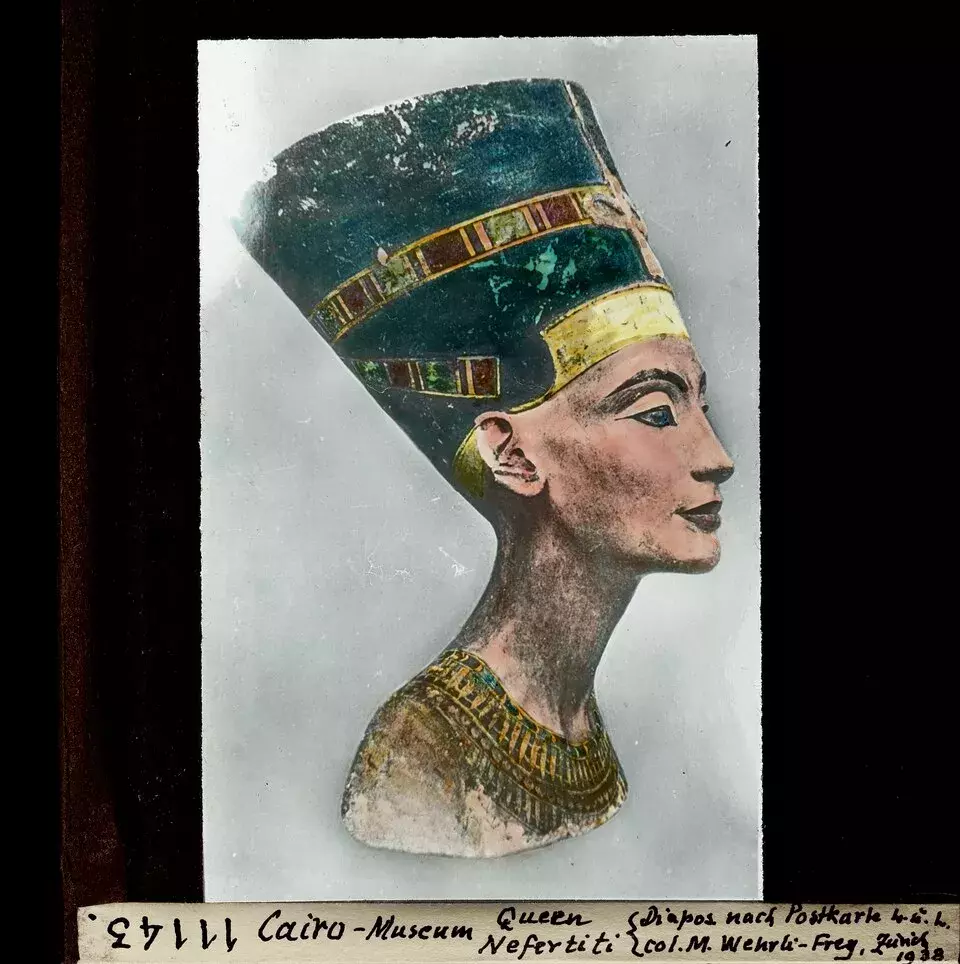 11143. Cairo-Museum Queen Nefertiti
Diapos nach Postkarte u.
col. M. Wehrli-Frey, Zürich
1938